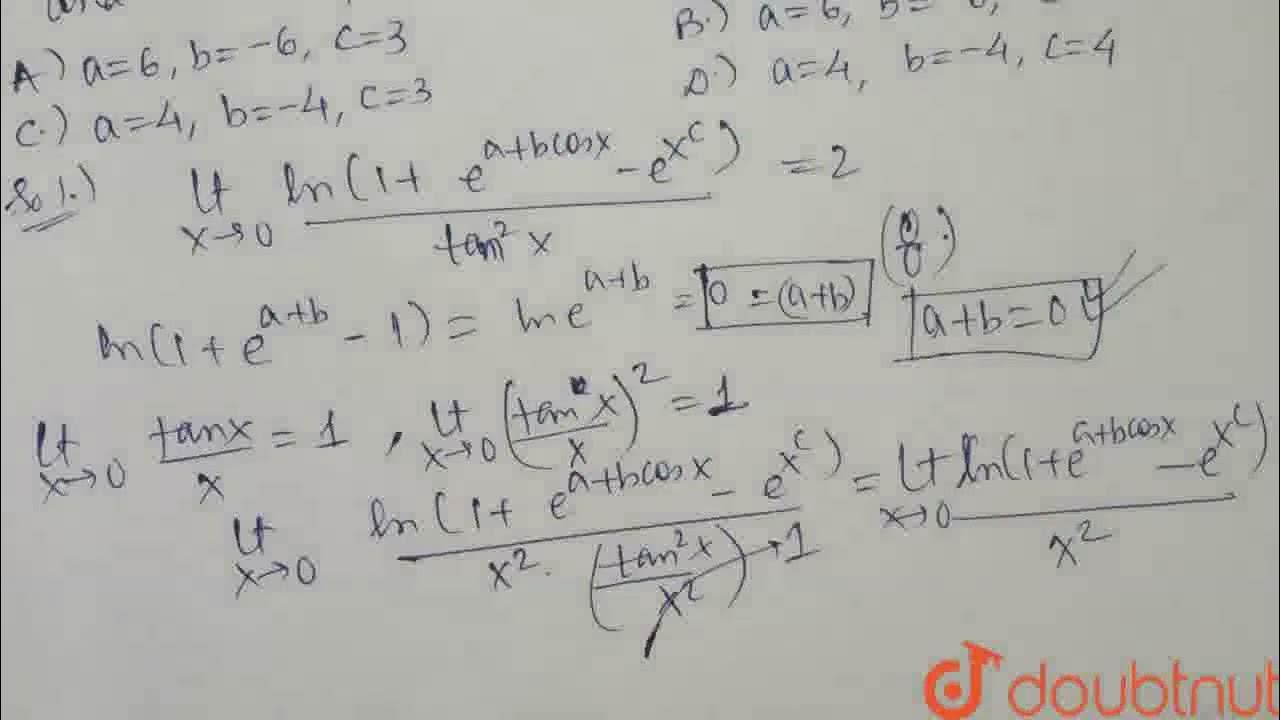 and
A) a=6, b=-6, c=3
B.) a=6, b=
C.) a=4, b=-4, c=3
D.) a=4, b=-4, c=4
So1.) Lt x→0 ln(1+ e^{a+bcosx} - e^{x^c}) / tan²x = 2
ln(1+e^{a+b} - 1) = ln e^{a+b} = 0 = (a+b) (0/0.) a+b=0
Lt x→0 tanx/x = 1, Lt x→0 (tan x/x)² = 1
Lt x→0 ln(1+ e^{a+bcosx} - e^{x^c}) / x². (tan²x/x²)→1 = Lt x→0 ln(1+e^{a+bcosx} - e^{x^c}) / x²
doubtnut